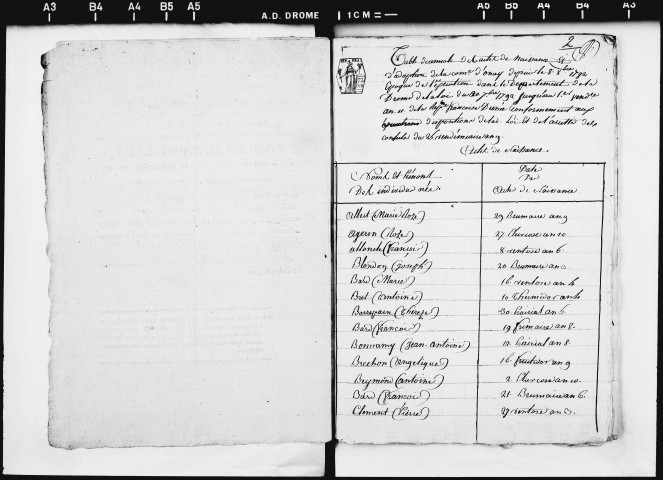 A3 B4 A4 B5 A5 A.D. DROME 1CM A5 B5 A4 B4 A3
2
Table decennale des actes de naissance et
d'adoption de la com.e d'onay depuis le 8 8bre 1792
Epoque de l'execution dans le Departement de la
Drome de la loi du 20 7bre 1792 jusqu'au 1er vendre
an 11 de la Rep. francoise Dressé conformement aux
dispositions de la Loi et de l'arretté des
consuls du 25 vendemiaire an 9
Acte de Naissance.
Noms et Prenoms
Des individus nés
Date
des
Acte de Naissance
Albert (Marie Roze) 29 Brumaire an 9
Ageron (Roze) 27 Pluviose an 10
Allonet (françois) 8 ventose an 6
Blondon (joseph) 20 Brumaire an 3
Bard (Marie) 16 ventose an 4
Bret (antoine) 10 Thermidor an 4
Barrepain (Thereze) 30 Prairial an 6
Bard (francois) 19 frimaire an 8.
Bonnamy (Jean-antoine) 12 Prairial an 8
Brechon (angelique) 16 fructidor an 9
Beymond (antoine) 2 Pluviose an 10
Bard (francois) 21 Brumaire an 6
Clement (Pierre) 27 ventose an 3.